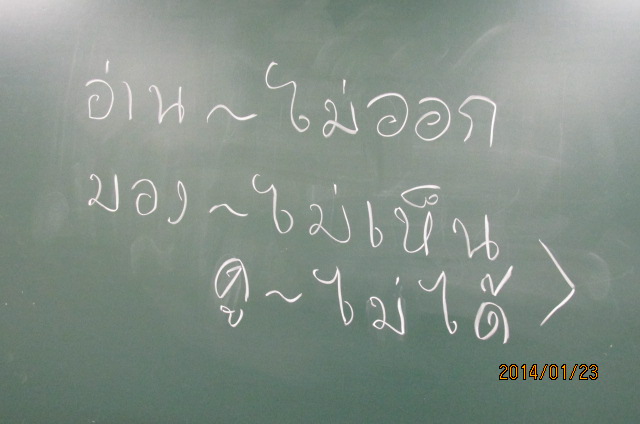 อ่าน~ไม่ออก
มอง~ไม่เห็น
ดู~ไม่ได้ >
2014/01/23